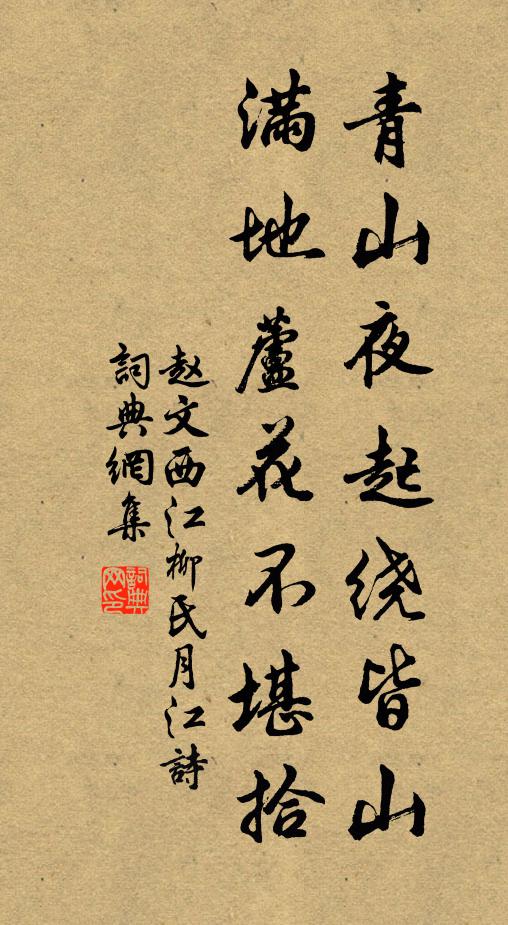 青山夜起绕皆山
满地蘆花不堪拾
赵文西江柳氏月江詩
詞典網集
詞典
网印